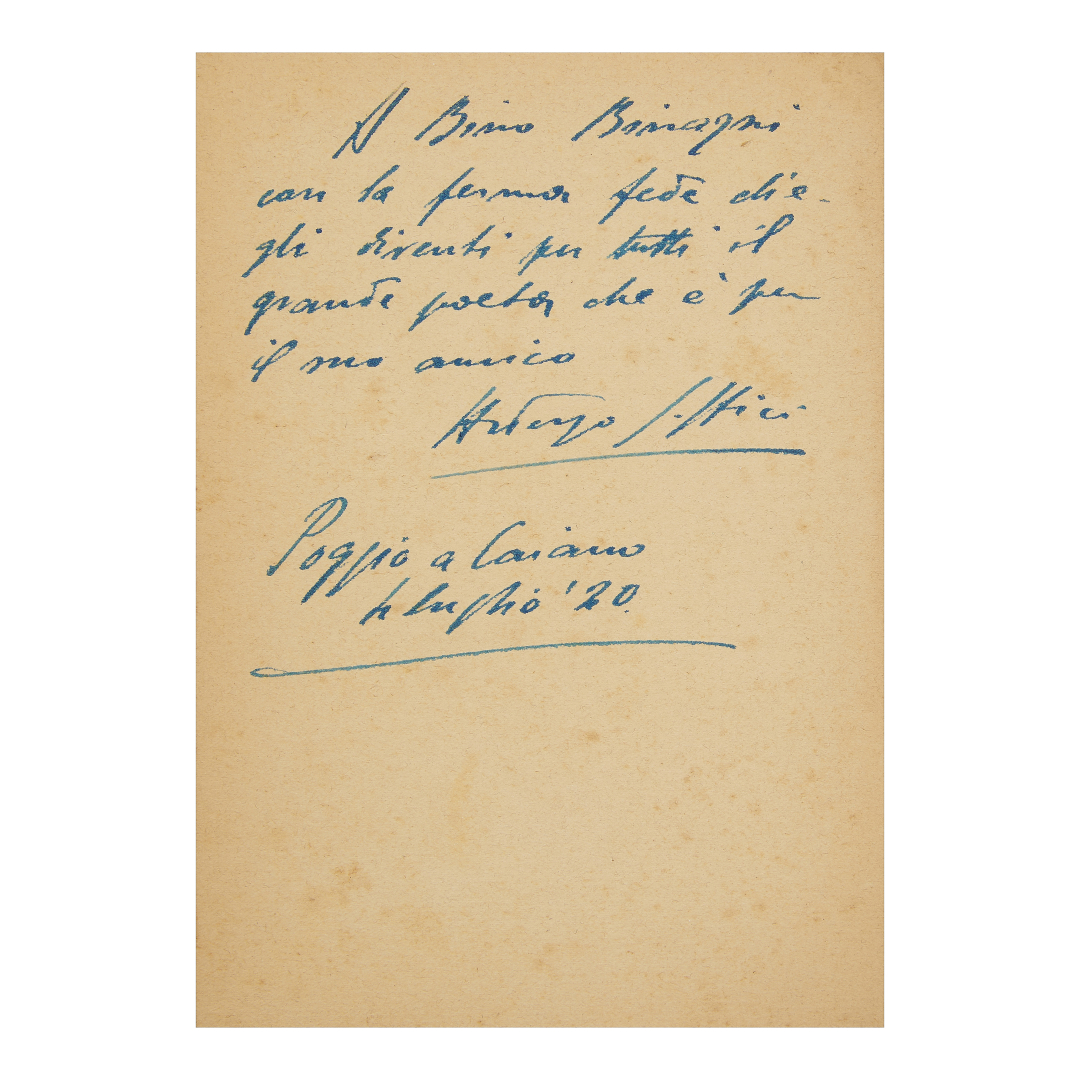 A Bino Binazzi
con la ferma fede ch'e-
gli diventi per tutti il
grande poeta che è per
il suo amico
Ardengo Soffici
Poggio a Caiano
4 luglio '20.